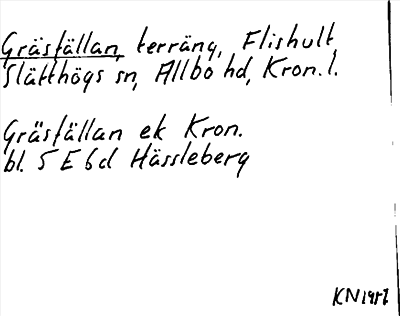 Gräsfällan, terräng, Flishult,
Slätthögs sn, Allbo hd, Kron. l.
Gräsfällan ek Kron.
bl. 5 E 6d Hässleberg
KN